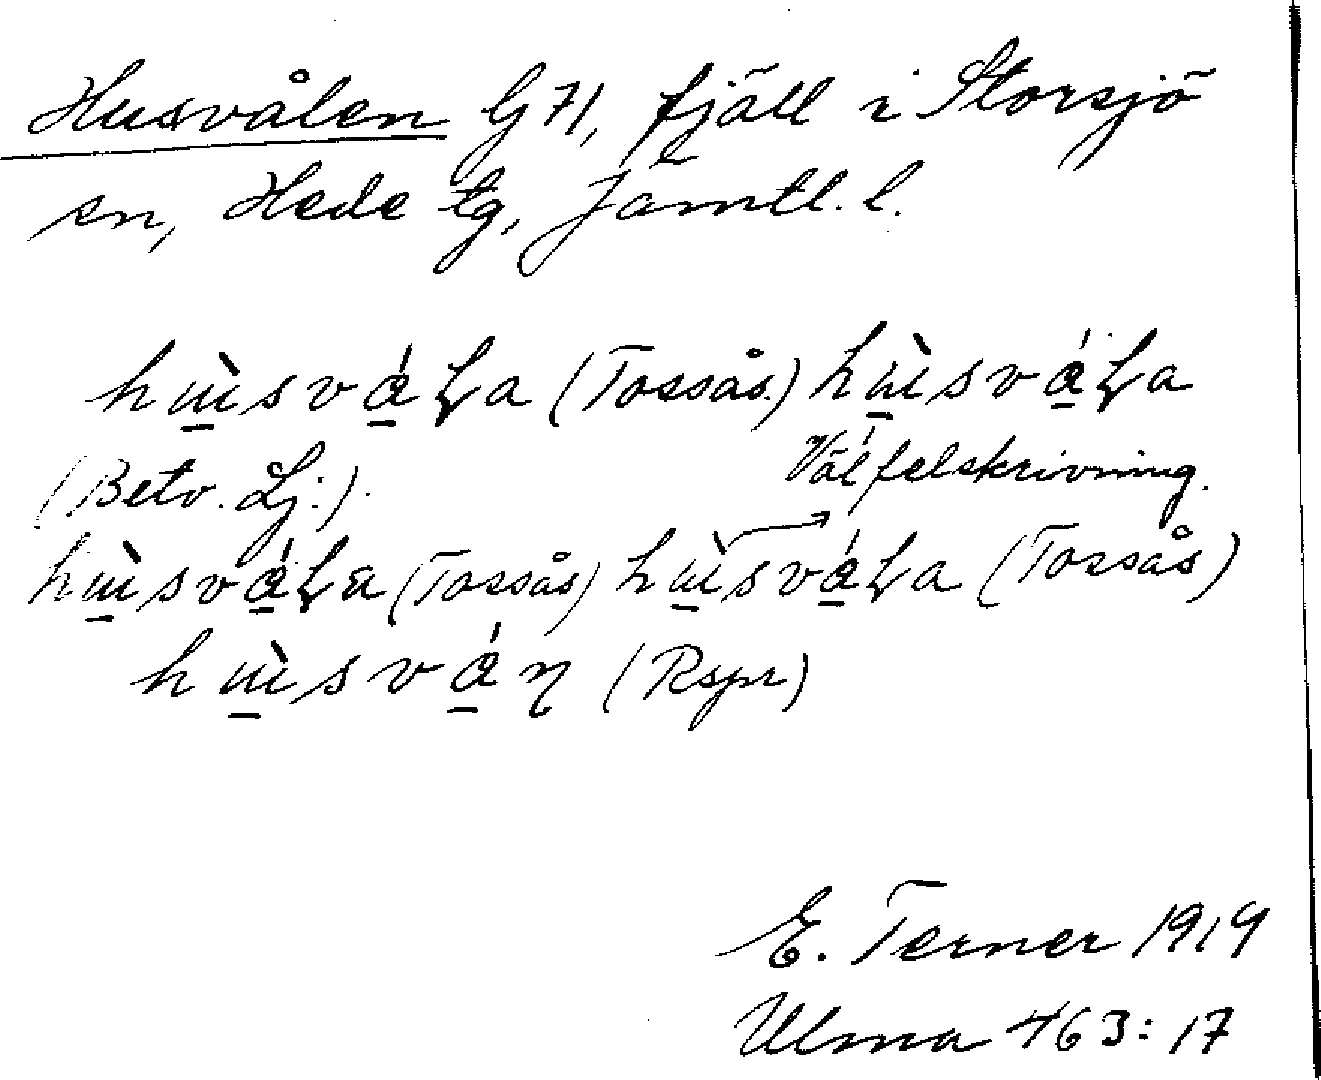 Husvålen G 71, fjäll i Storsjö
sn, Hede tg, Jämtl. l.
hùsvåLa (Tossås.) hùsvåLa
(Betv. Lj:).
Väl felskrivning.
hùsvåLa (Tossås) hùsvåLa (Tossås)
hùsvåη (Rspr)
E. Terner 1919
Ulma 463:17